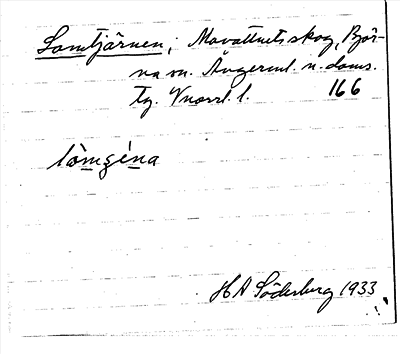 Lomtjärnen; Movattnets skog, Björ-
na sn. Ångerml. n. doms.
tg. Vnorrl. l. 166
lòmǥéna
H A Söderberg 1933